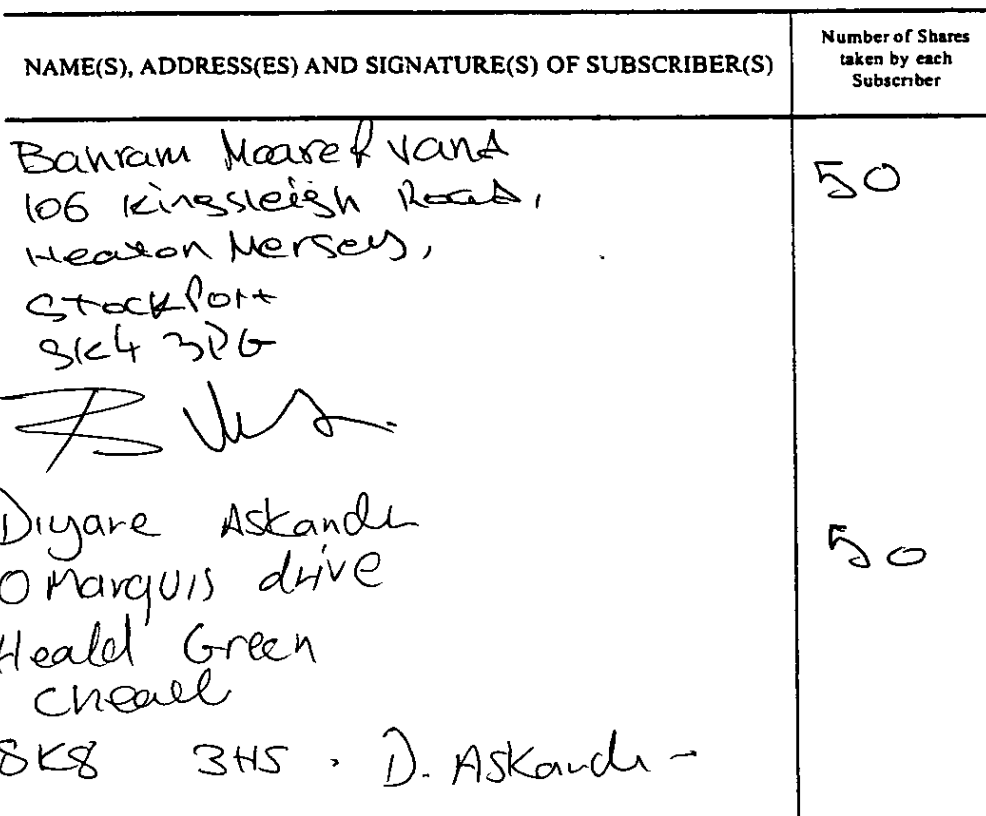 NAME(S), ADDRESS(ES) AND SIGNATURE(S) OF SUBSCRIBER(S)
Number of Shares
taken by each
Subscriber
Bahram Moaref vand
50
106 Kingsleigh Road,
Heaton Mersey,
Stockport
SK4 3PG
Diyare Askander
50
0 Marquis drive
Heald Green
SK8 3HS . D. Askander